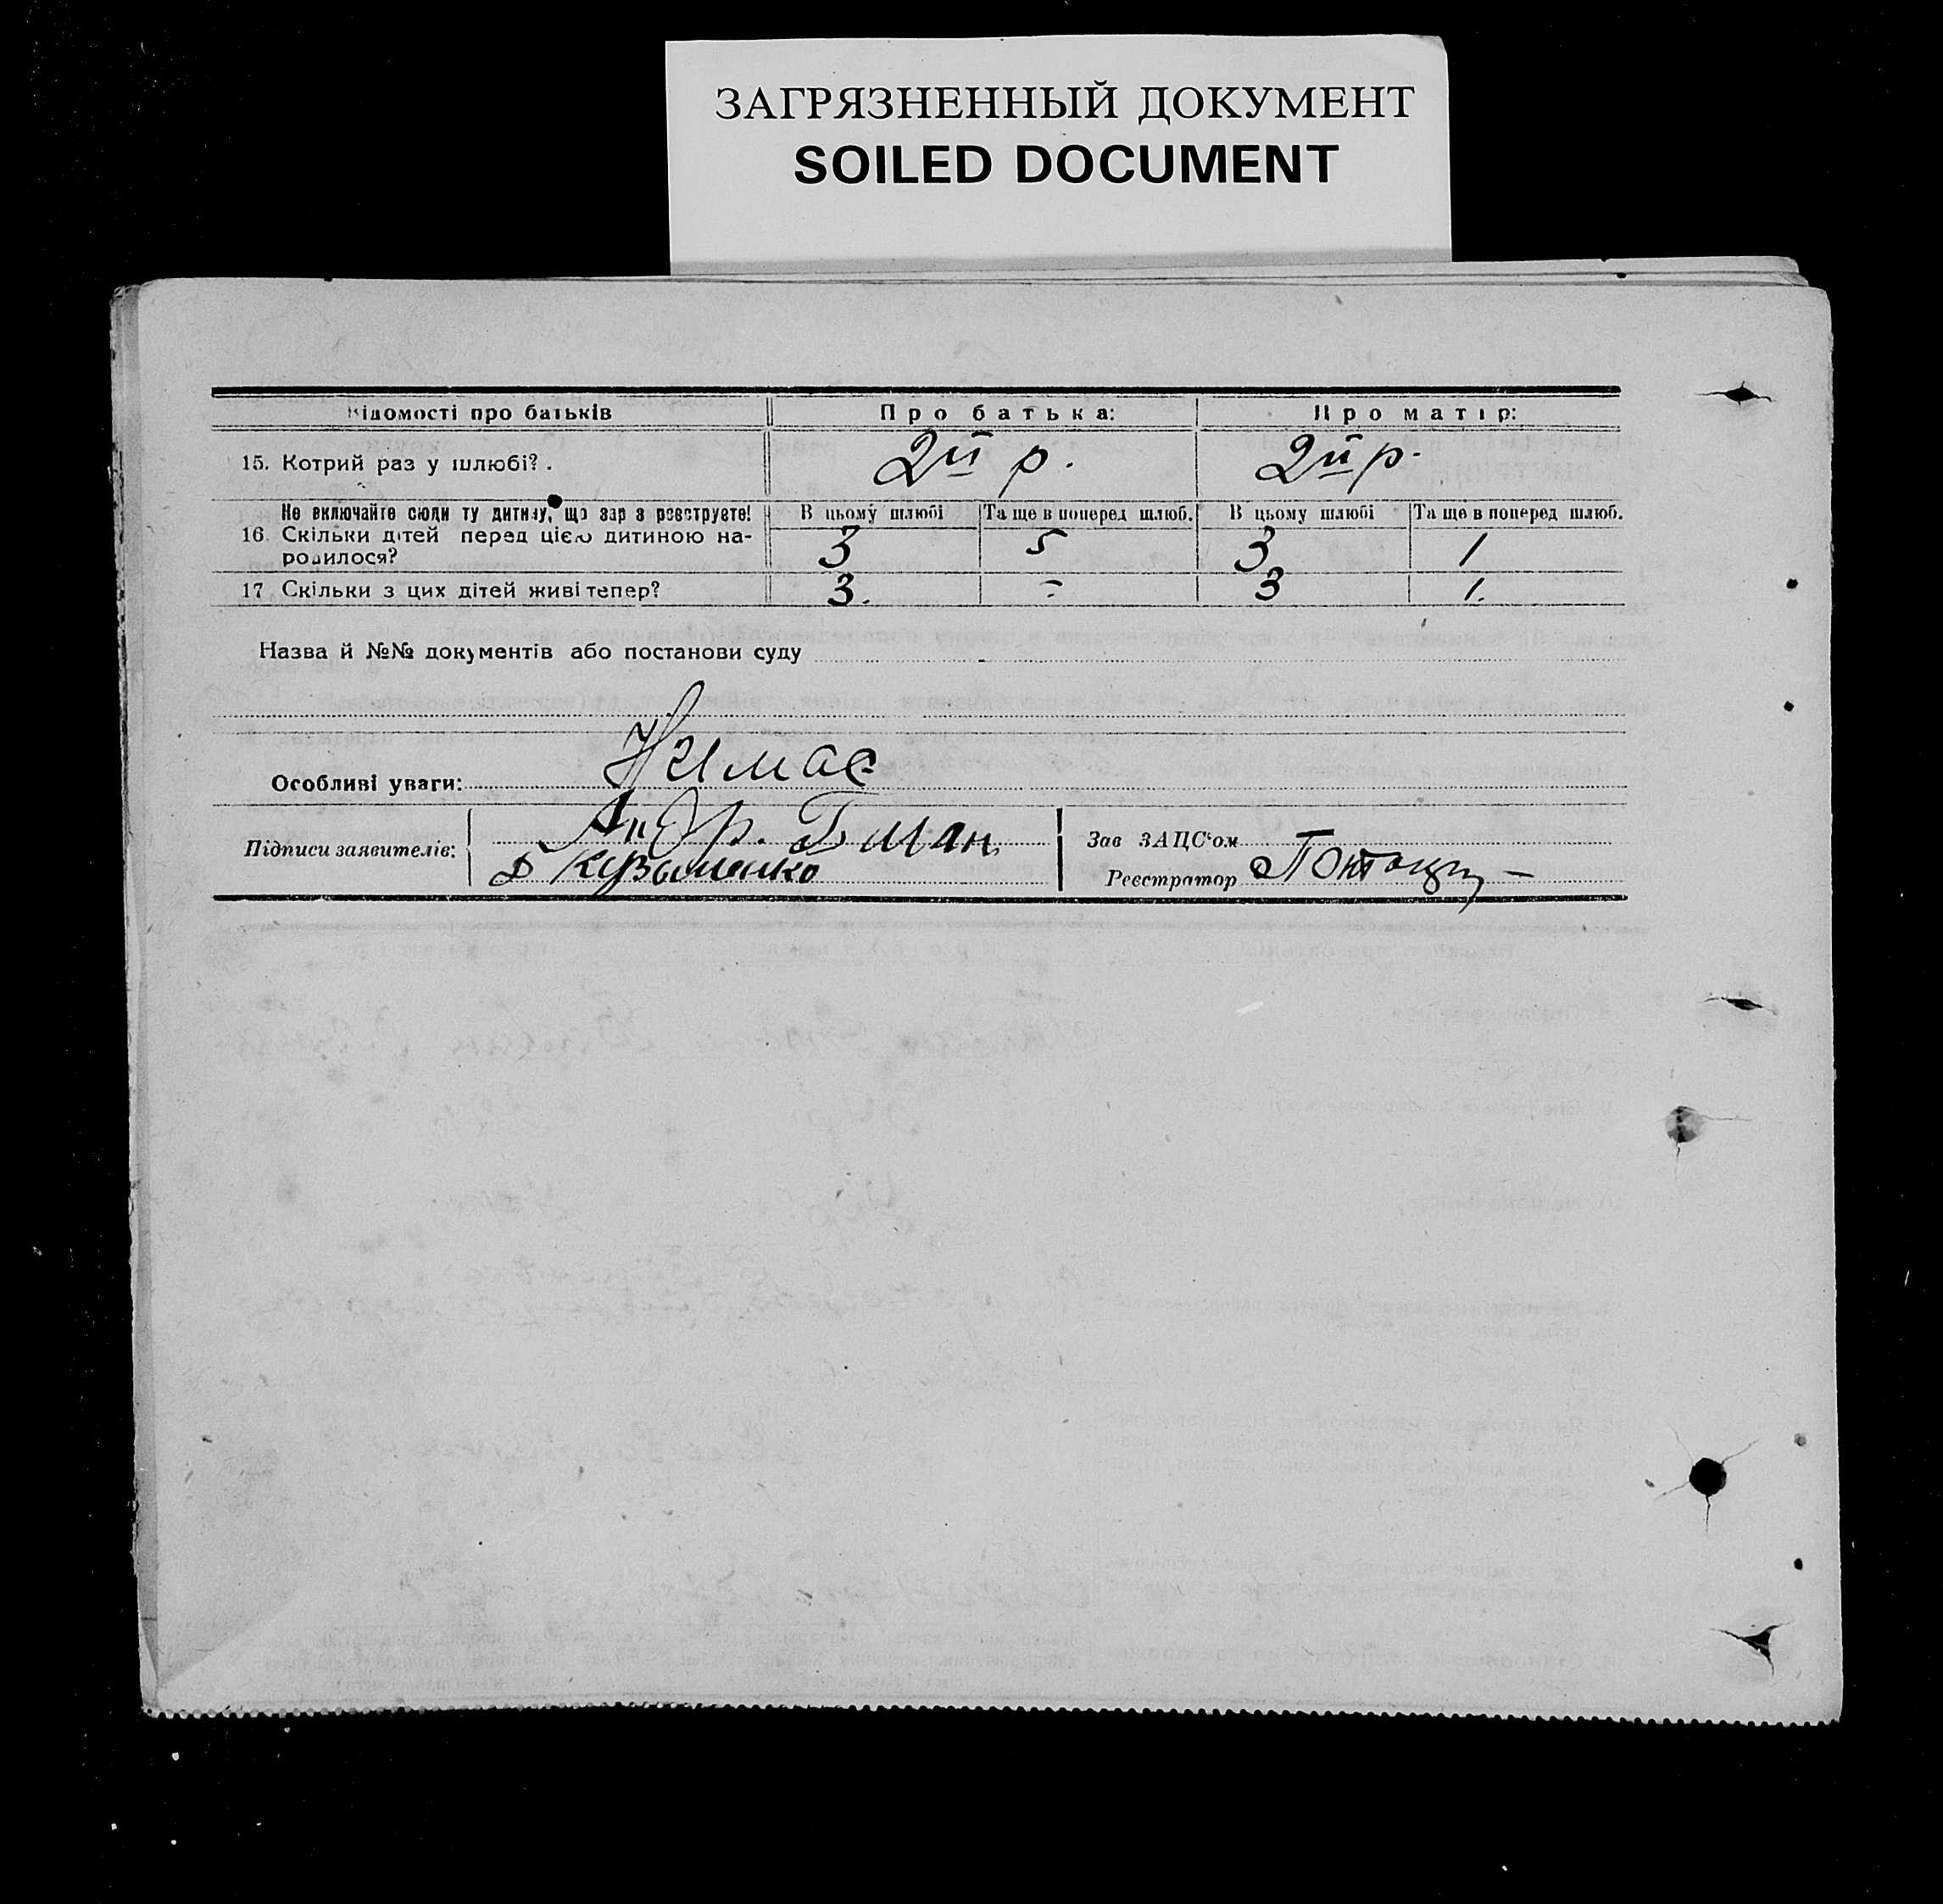 ЗАГРЯЗНЕННЫЙ ДОКУМЕНТ
SOILED DOCUMENT
Відомості про батьків Про батька: Про матір:
15. Котрий раз у шлюбі?. 2й р. 2й р.
Не включайте сюди ту дитину, що зараз реєструєте! В цьому шлюбі Та ще в поперед шлюб. В цьому шлюбі Та ще в поперед шлюб.
16. Скільки дітей перед цією дитиною на-
родилося? 3 5 3 1
17 Скільки з цих дітей живі тепер? 3. - 3 1.
Назва й №№ документів або постанови суду
Особливі уваги: Нимає
Підписи заявителів: Андр.
Кузьменко
Зав ЗАЦС‘ом
Реєстратор